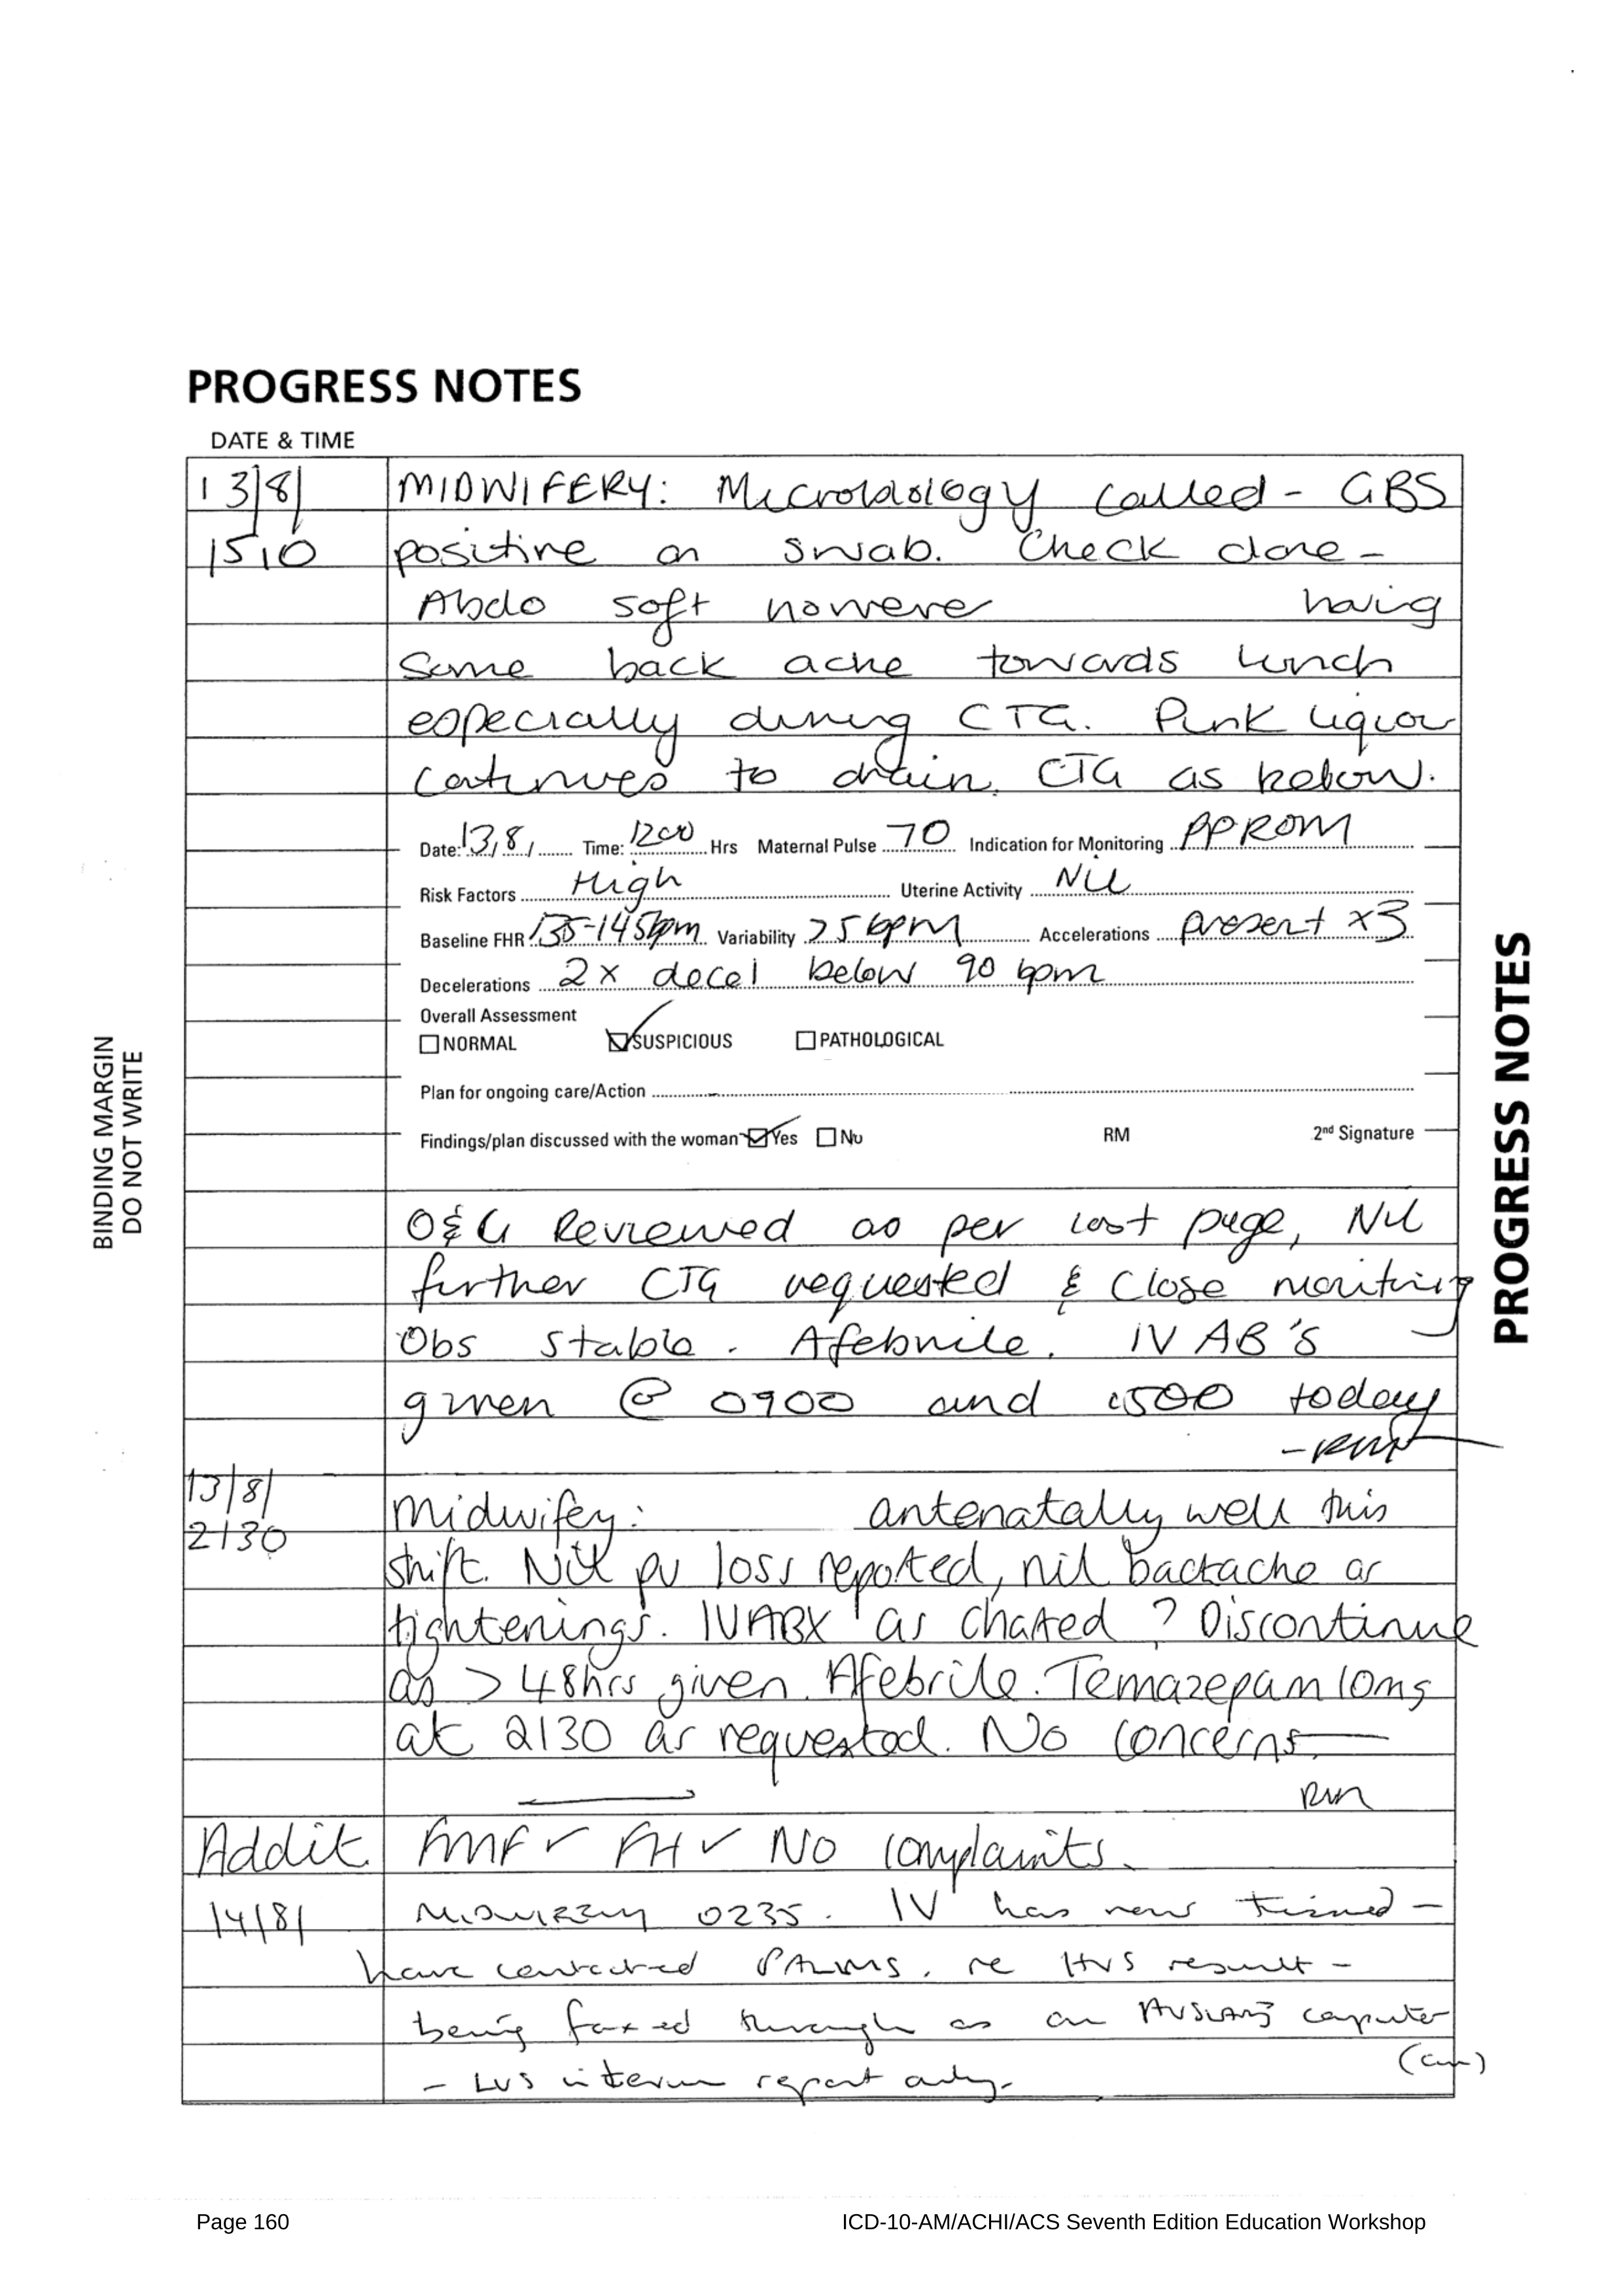 PROGRESS NOTES
DATE & TIME
13/8/ MIDWIFERY: Microbiology called - GBS
1510 positive on swab. Check done -
Abdo soft however having
some back ache towards lunch
especially during CTG. Pink liquor
continues to drain. CTG as below.
Date: 13/8/ Time: 1200 Hrs Maternal Pulse 70 Indication for Monitoring PPROM
Risk Factors High Uterine Activity Nil
Baseline FHR 135-145bpm Variability >5 bpm Accelerations present x3
Decelerations 2x decel below 90 bpm
Overall Assessment
NORMAL SUSPICIOUS PATHOLOGICAL
Plan for ongoing care/Action
Findings/plan discussed with the woman Yes No RM 2nd Signature
O&G Reviewed as per last page, Nil
further CTG requested & Close monitoring
Obs stable. Afebrile. IV AB's
given @ 0900 and 1500 today
13/8/
2130 Midwifey: antenatally well this
shift. Nil pv loss reported, nil backache or
tightenings. IVABX as charted ? Discontinue
as > 48hrs given. Afebrile. Temazepam 10mg
at 2130 as requested. No concerns
RM
Addit. FMF ✓ FH ✓ No complaints.
14/8/ Midwifery 0235. IV has now tissued -
have contacted PALMS. re HVS result -
being faxed through as on AUSLAB computer
- LVS interim report only.
BINDING MARGIN
DO NOT WRITE
PROGRESS NOTES
Page 160 ICD-10-AM/ACHI/ACS Seventh Edition Education Workshop